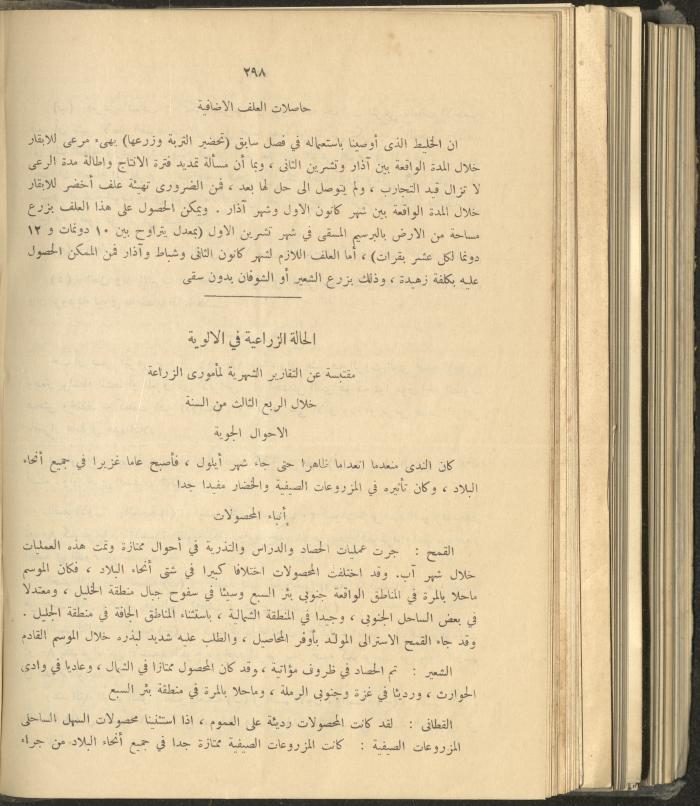 ٢٩٨
حاصلات العلف الاضافية
ان الخليط الذى أوصينا باستعماله في فصل سابق (تحضير التربة وزرعها) يهيء مرعى للابقار
خلال المدة الواقعة بين آذار وتشرين الثانى ، وبما أن مسألة تمديد فترة الانتاج واطالة مدة الرعى
لا تزال قيد التجارب ، ولم يتوصل الى حل لها بعد ، فمن الضرورى تهيئة علف أخضر للابقار
خلال المدة الواقعة بين شهر كانون الاول وشهر آذار . ويمكن الحصول على هذا العلف بزرع
مساحة من الارض بالبرسيم المسقى في شهر تشرين الاول (بمعدل يتراوح بين ١٠ دونمات و ١٢
دونما لكل عشر بقرات) ، أما العلف اللازم لشهر كانون الثانى وشباط وآذار فمن الممكن الحصول
عليه بكلفة زهيدة ، وذلك بزرع الشعير أو الشوفان بدون سقى
الحالة الزراعية في الالوية
مقتبسة عن التقارير الشهرية لمأمورى الزراعة
خلال الربع الثالث من السنة
الاحوال الجوية
كان الندى منعدما انعداما ظاهرا حتى جاء شهر أيلول ، فأصبح عاما غزيرا في جميع أنحاء
البلاد ، وكان تأثيره في المزروعات الصيفية والخضار مفيدا جدا
أنباء المحصولات
القمح : جرت عمليات الحصاد والدراس والتذرية في أحوال ممتازة وتمت هذه العمليات
خلال شهر آب. وقد اختلفت المحصولات اختلافا كبيرا في شتى أنحاء البلاد ، فكان الموسم
ماحلا بالمرة في المناطق الواقعة جنوبى بئر السبع وسيئا في سفوح جبال منطقة الخليل ، ومعتدلا
في بعض الساحل الجنوبى ، وجيدا في المنطقة الشمالية ، باستثناء المناطق الجافة في منطقة الجليل .
وقد جاء القمح الاسترالى المولد بأوفر المحاصيل ، والطلب عليه شديد لبذره خلال الموسم القادم
الشعير : تم الحصاد في ظروف مؤاتية ، وقد كان المحصول ممتازا في الشمال ، وعاديا في وادى
الحوارث ، ورديئا في غزة وجنوبى الرملة ، وماحلا بالمرة في منطقة بئر السبع
القطانى : لقد كانت المحصولات رديئة على العموم ، اذا استثنينا محصولات السهل الساحلى
المزروعات الصيفية : كانت المزروعات الصيفية ممتازة جدا في جميع أنحاء البلاد من جراء